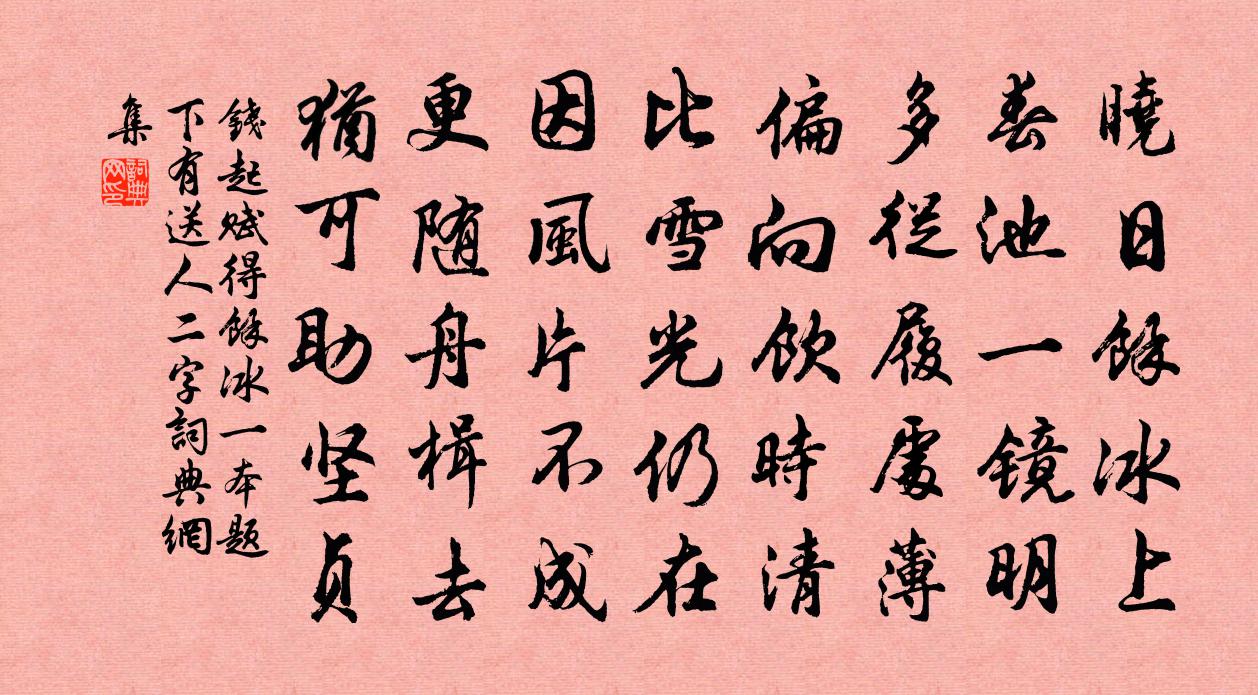 曉日餘冰上
春池一镜明
多從履處薄
偏向飲時清
比雪光仍在
因風片不成
更随舟楫去
猶可助坚贞
錢起赋得餘冰一本题
下有送人二字詞典網
集
詞典網印